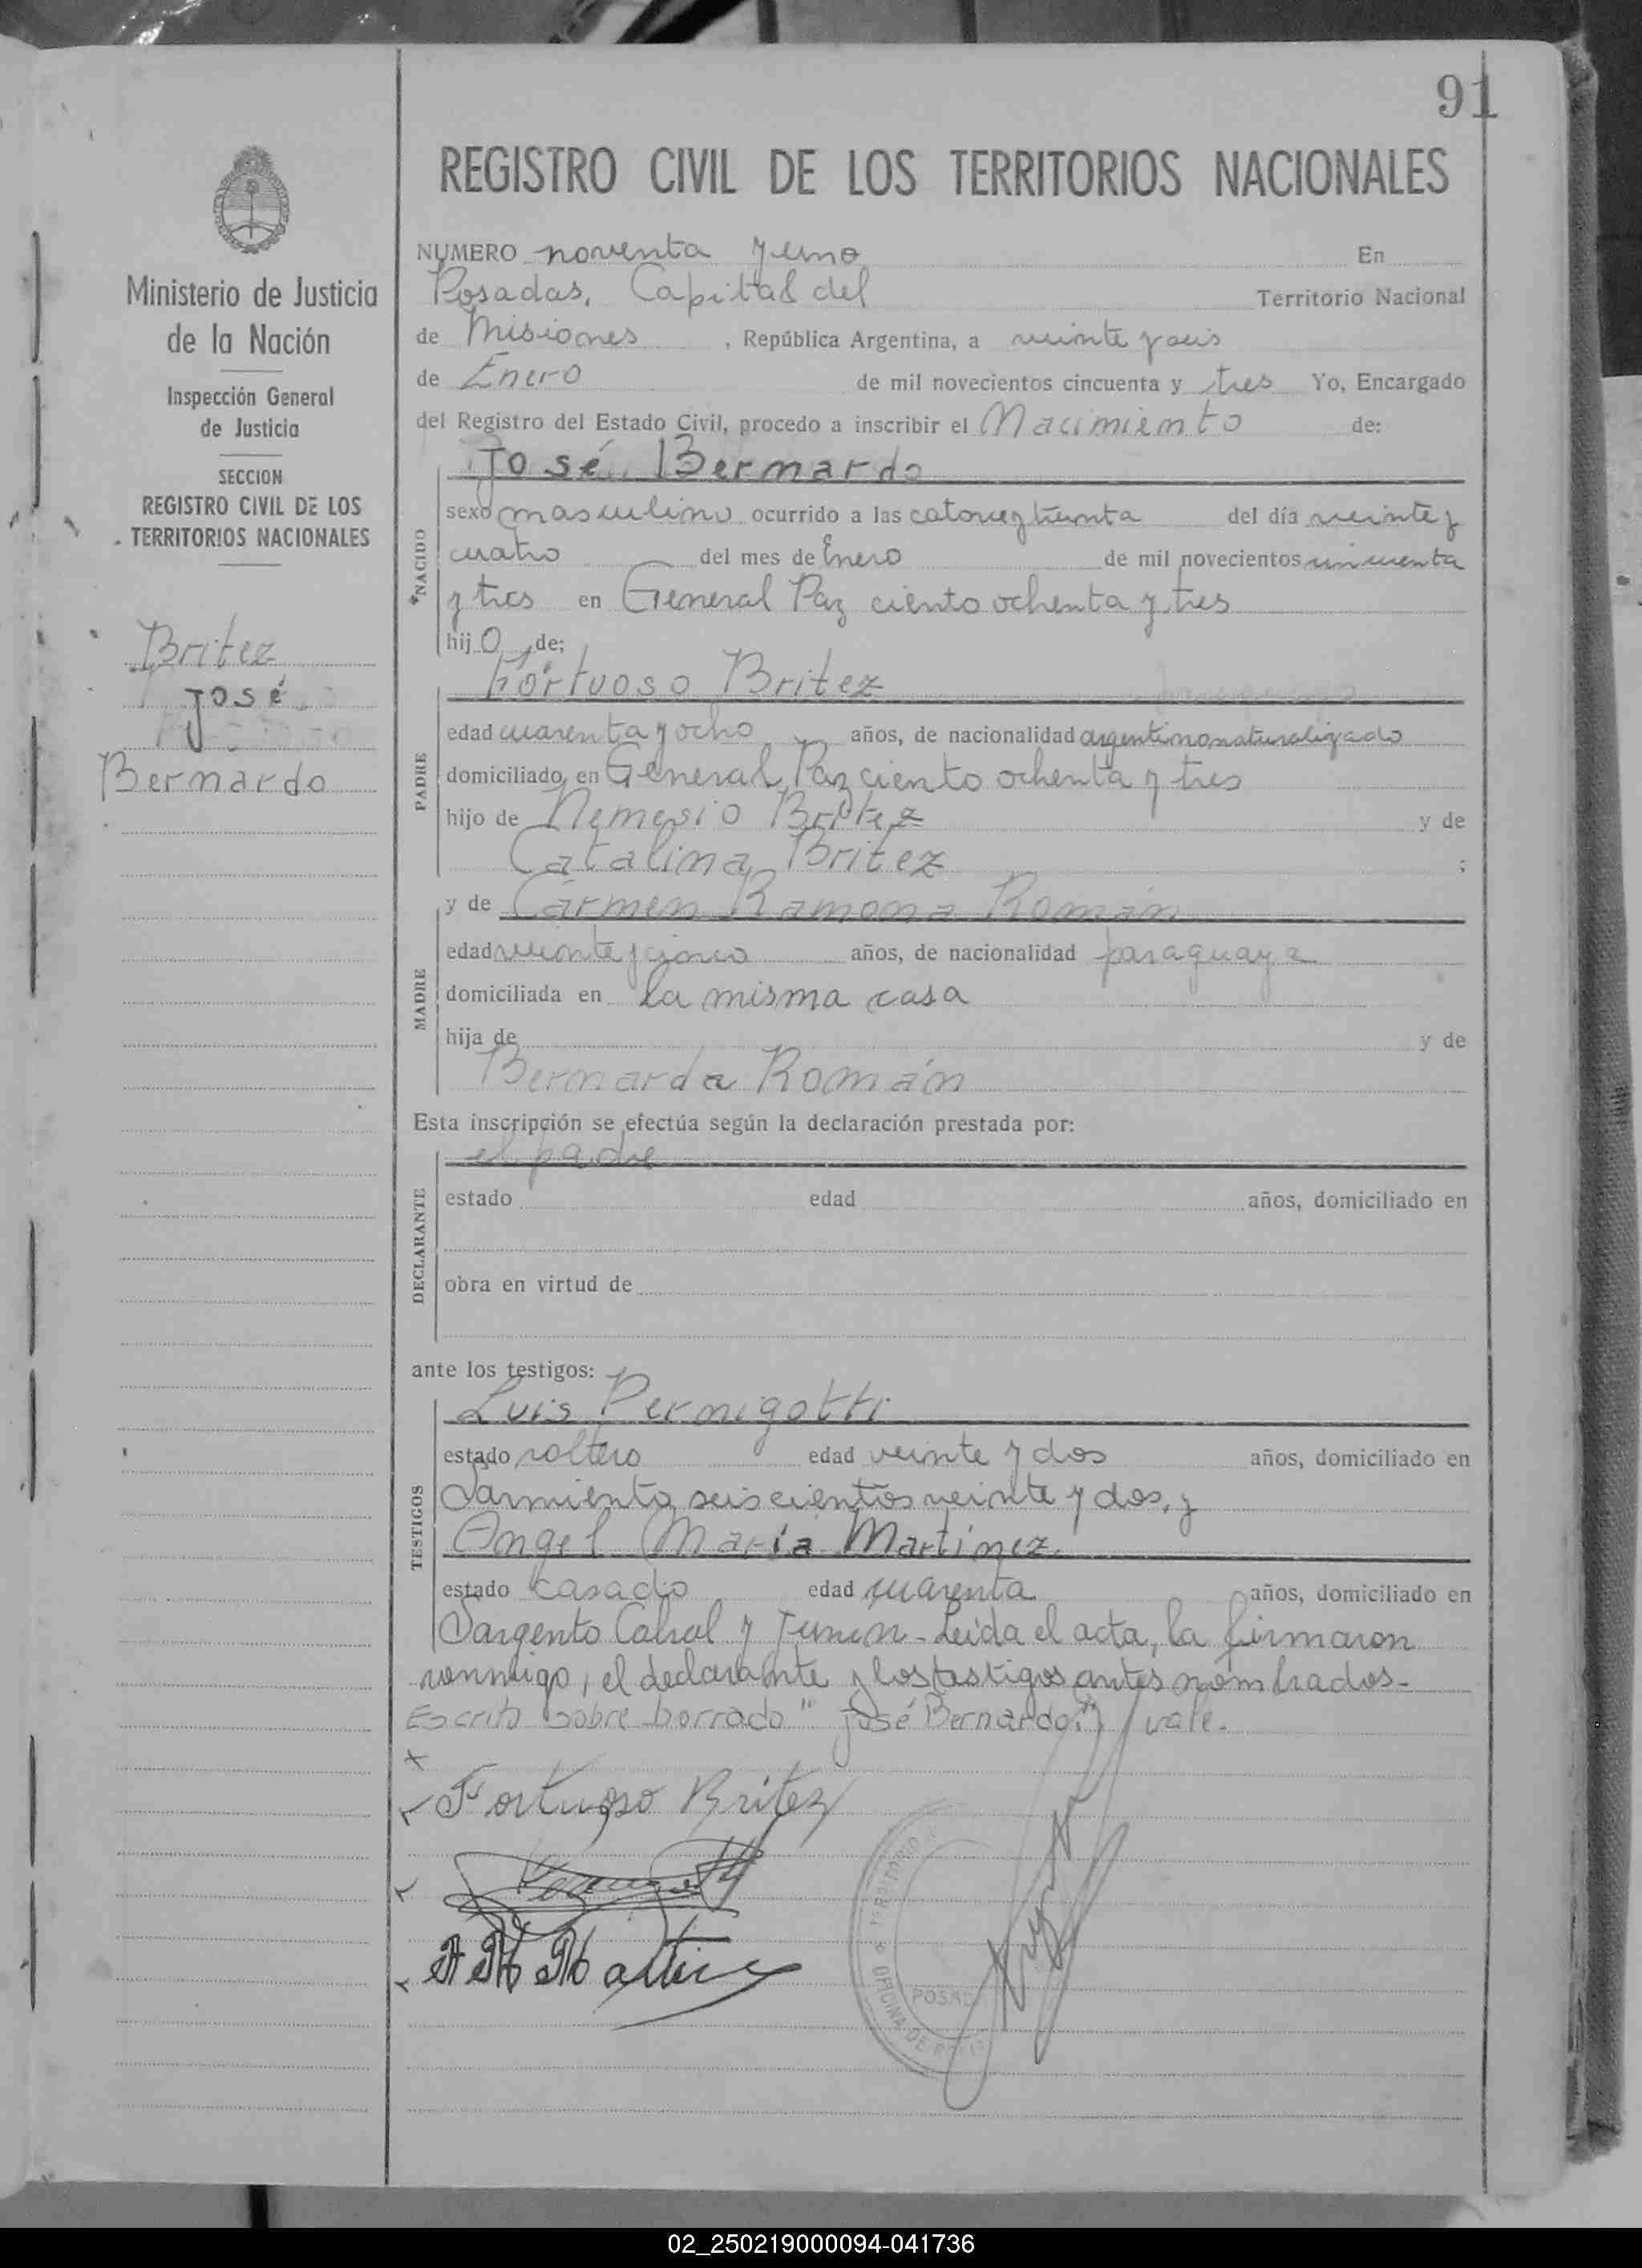 91
REGISTRO CIVIL DE LOS TERRITORIOS NACIONALES
Ministerio de Justicia
de la Nación
Inspección General
de Justicia
SECCION
REGISTRO CIVIL DE LOS
TERRITORIOS NACIONALES
Britez
José
Bernardo
NUMERO noventa y uno En
Posadas, Capital del Territorio Nacional
de Misiones , República Argentina, a veinte y seis
de Enero de mil novecientos cincuenta y tres Yo, Encargado
del Registro del Estado Civil, procedo a inscribir el Nacimiento de:
José Bernardo
NACIDO
sexo masculino ocurrido a las catorce y treinta del día veinte y
cuatro del mes de Enero de mil novecientos cincuenta
y tres en General Paz ciento ochenta y tres
hijo de;
Fortuoso Britez
PADRE
edad cuarenta y ocho años, de nacionalidad argentino naturalizado
domiciliado en General Paz ciento ochenta y tres
hijo de Nemesio Britez y de
Catalina Britez ;
y de Carmen Ramona Román
MADRE
edad veinte y cinco años, de nacionalidad paraguaya
domiciliada en la misma casa
hija de y de
Bernarda Román
Esta inscripción se efectúa según la declaración prestada por:
el padre
DECLARANTE
estado edad años, domiciliado en
obra en virtud de
ante los testigos:
Luis Pernigotti
TESTIGOS
estado soltero edad veinte y dos años, domiciliado en
Sarmiento seiscientos veinte y dos, y
Angel María Martínez
estado casado edad cuarenta años, domiciliado en
Sargento Cabral y Junín - Leida el acta, la firmaron
conmigo, el declarante y los testigos antes nombrados-
Escrito sobre borrado "José Bernardo." vale.
Fortuoso Britez
A M Martinez
TERRITORIO
OFICINA DE
POSADAS
02_250219000094-041736